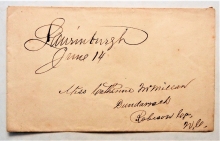 Laurinburgh
June 14
Miss Catherine McMillan
Robeson Co.
N.C.